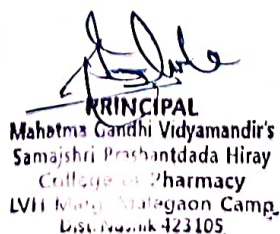 PRINCIPAL
Mahatma Gandhi Vidyamandir's
Samajshri Prashantdada Hiray
College of Pharmacy
LVH Marg, Malegaon Camp,
Dist. Nashik 423105